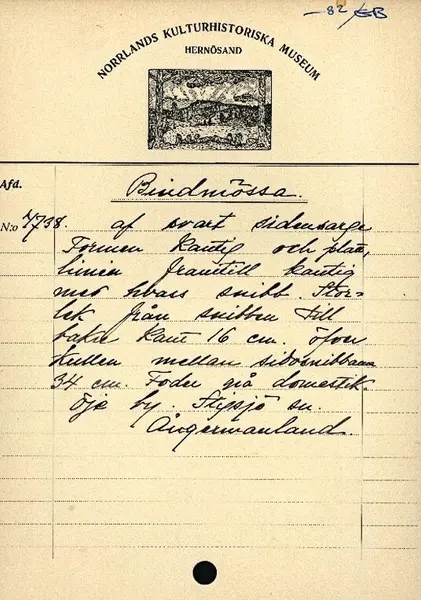 -82 /EB
NORRLANDS KULTURHISTORISKA MUSEUM
HERNÖSAND
Afd.
Bindmössa.
N:o 4738. af svart sidensarge
Formen kantig och platt,
linnen framtill kantig
med hvass snibb. Stor-
lek från snibben till
bakre kant 16 cm. öfver
kullen mellan sidosnibbarna
34 cm. Foder grå domestik.
Öje by. Stigsjö sn.
Ångermanland.